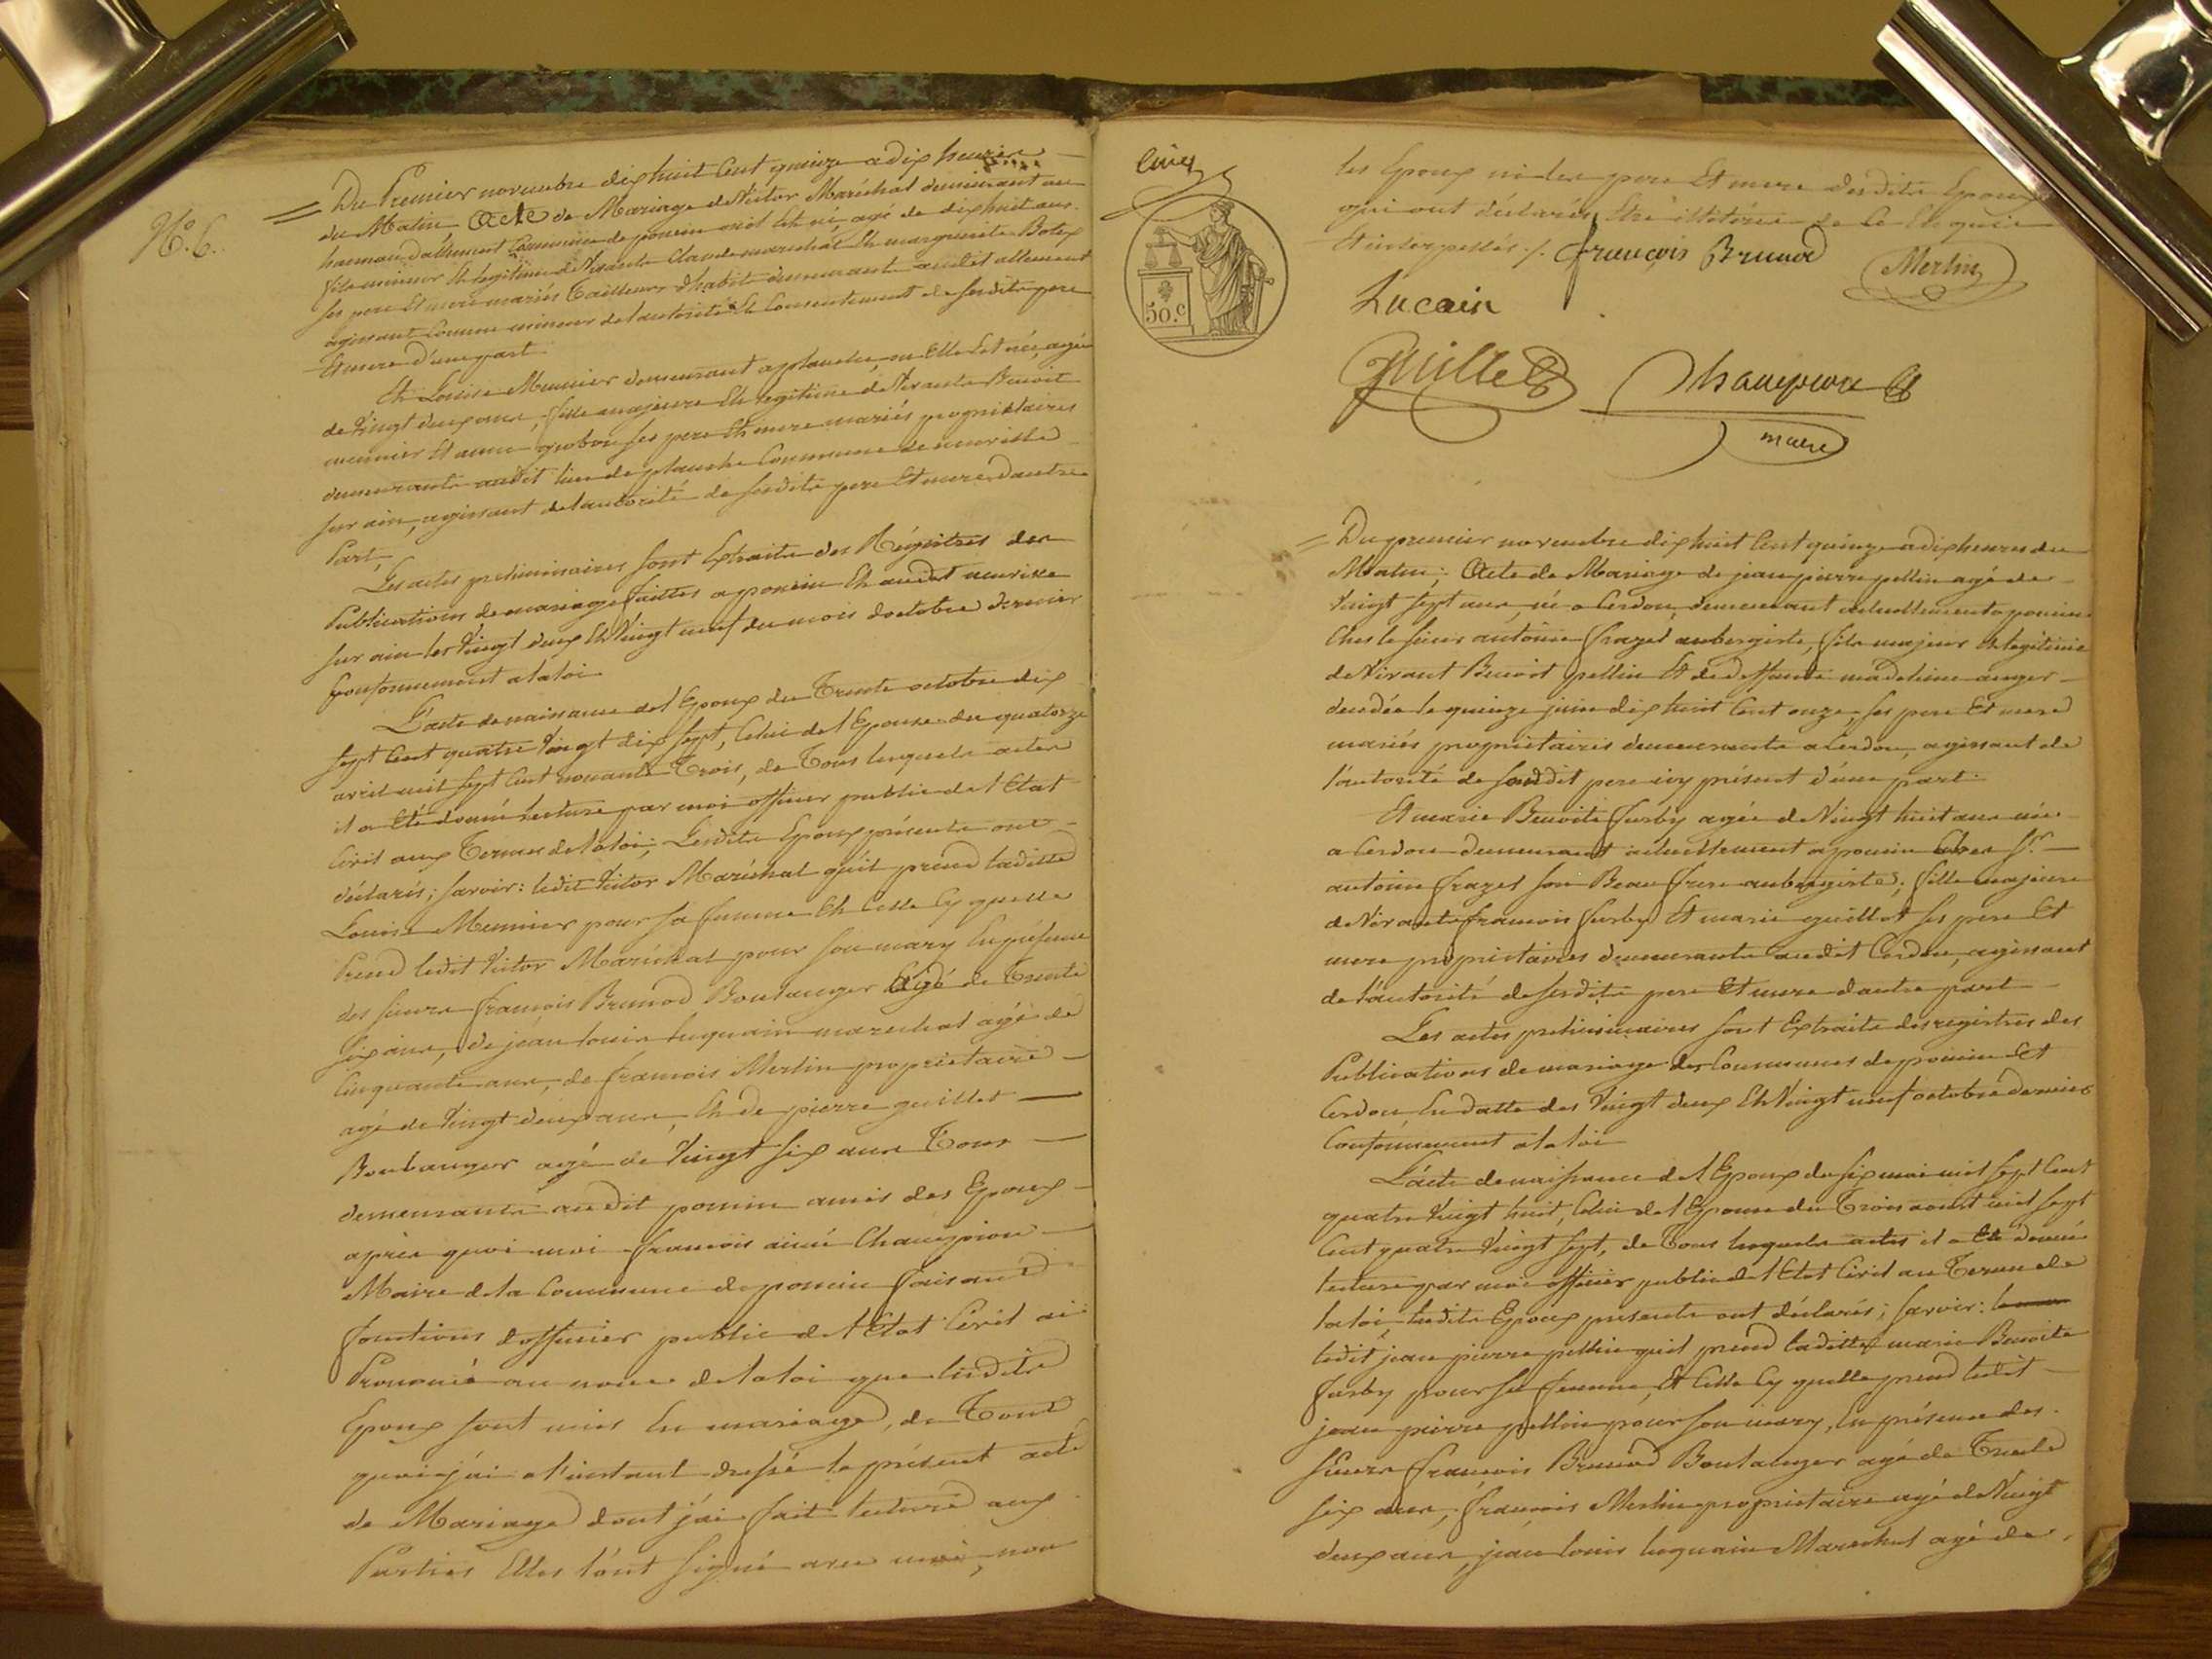 N.º 6.
Du Premier novembre dix huit Cent quinze a dix heures
du Matin Acte de Mariage de Victor Maréchal demeurant au
hameau dallement Commune de poncin où il Est né, agé de dix huit ans.
fils mineur Et legitime de Vivants Claude marechal Et marguerite Botex
ses pere Et mere mariés Tailleurs dhabits demeurants audit allement
agissant Comme mineur de lautorité Et Consentement de sesdits pere
Et mere d'une part
Et Louise Meunier demeurant a planche, ou Elle Est née, agée
de Vingt deux ans, fille majeure Et legitime de Vivants Benoit
meunier Et anne gobon ses pere Et mere mariés propriétaires
demeurants audit lieu de planche Commune de neuville
sur ain, agissant de lautorité de sesdits pere Et mere d'autre
Part,
Les actes preliminaires sont Extraits des Régistres des
Publications de mariage faittes a poncin Et audit neuville
sur ain les Vingt deux Et Vingt neuf du mois doctobre dernier
Conformement a la loi
L'acte de naissance de l'Epoux du Trente octobre dix
sept Cent quatre Vingt dix sept, Celui de l'Epouse du quatorze
avril mil sept Cent nonante Trois, de Tous lesquels actes
il a Eté donné lecture par moi officier public de l'Etat
Civil aux Termes de la loi; Lesdits Epoux présents ont
déclarés; savoir: ledit Victor Maréchal qu'il prend laditte
Louise Meunier pour sa femme Et Celle Cy quelle
Prend ledit Victor Maréchal pour son mary En présence
des sieurs francois Brunod Boulanger Agé de Trente
six ans, de jean louis luquain marechal agé de
Cinquante ans, de francois Merlin propriétaire
agé de Vingt deux ans, Et de pierre guillet
Boulanger agé de Vingt six ans Tous
demeurants audit poncin amis des Epoux
après quoi moi francois aimé Champion
Maire de la Commune de poncin faisant
fonctions dofficier public de l'Etat Civil ai
Prononcé au nom de la loi que lesdits
Epoux sont unis En mariage, de Tout
quoi j'ai a l'instant dressé le présent acte
de Mariage dont j'ai fait lecture aux
Parties Elles l'ont signé avec moi, non
Cinq
50.c
les Epoux ni les pere Et mere desdits Epoux
qui ont déclarés Etre illitérés de Ce Enquis
Et interpellés ./. françois Brunod
Merlin
Lucain
Guillet
Champion
maire
Du premier novembre dix huit Cent quinze a dix heures du
Matin; Acte de Mariage de jean pierre pellin agé de
Vingt sept ans, né a Cerdon, demeurant actuellement a poncin
Chez le sieur antoine frazet aubergiste, fils majeur Et legitime
de Vivant Benoit pellin Et de deffunte madelaine auger
decedée le quinze juin dix huit Cent onze, ses pere Et mere
mariés propriétaires demeurants a Cerdon, agissant de
l'autorité de sondit pere icy présent d'une part.
Et marie Benoite furby agée de Vingt huit ans née
a Cerdon demeurant actuellement a poncin Chez Sr.
antoine frazet son Beau frere aubergiste; fille majeure
de Vivants francois furby Et marie guillot ses pere Et
mere propriétaires demeurants audit Cerdon, agissant
de l'autorité de sesdits pere Et mere dautre part
Les actes preliminaires sont Extraits des registres des
Publications de mariage des Communes de poncin Et
Cerdon En datte des Vingt deux Et Vingt neuf octobre dernier
Conformement a la loi
L'acte de naissance de l'Epoux du six mai mil sept Cent
quatre Vingt huit, Celui de l'Epouse du Trois aout mil sept
Cent quatre Vingt sept, de Tous lesquels actes il a Eté donné
lecture par moi officier public de l'Etat Civil au Terme de
la loi, lesdits Epoux présents ont déclarés; savoir:
ledit jean pierre pellin qu'il prend laditte marie Benoite
furby pour sa femme, Et Celle Cy quelle prend ledit
jean pierre pellin pour son mary, En présence des
sieurs françois Brunod Boulanger agé de Trente
six ans, francois Merlin propriétaire agé de Vingt
deux ans, jean louis luquain Marechal agé de